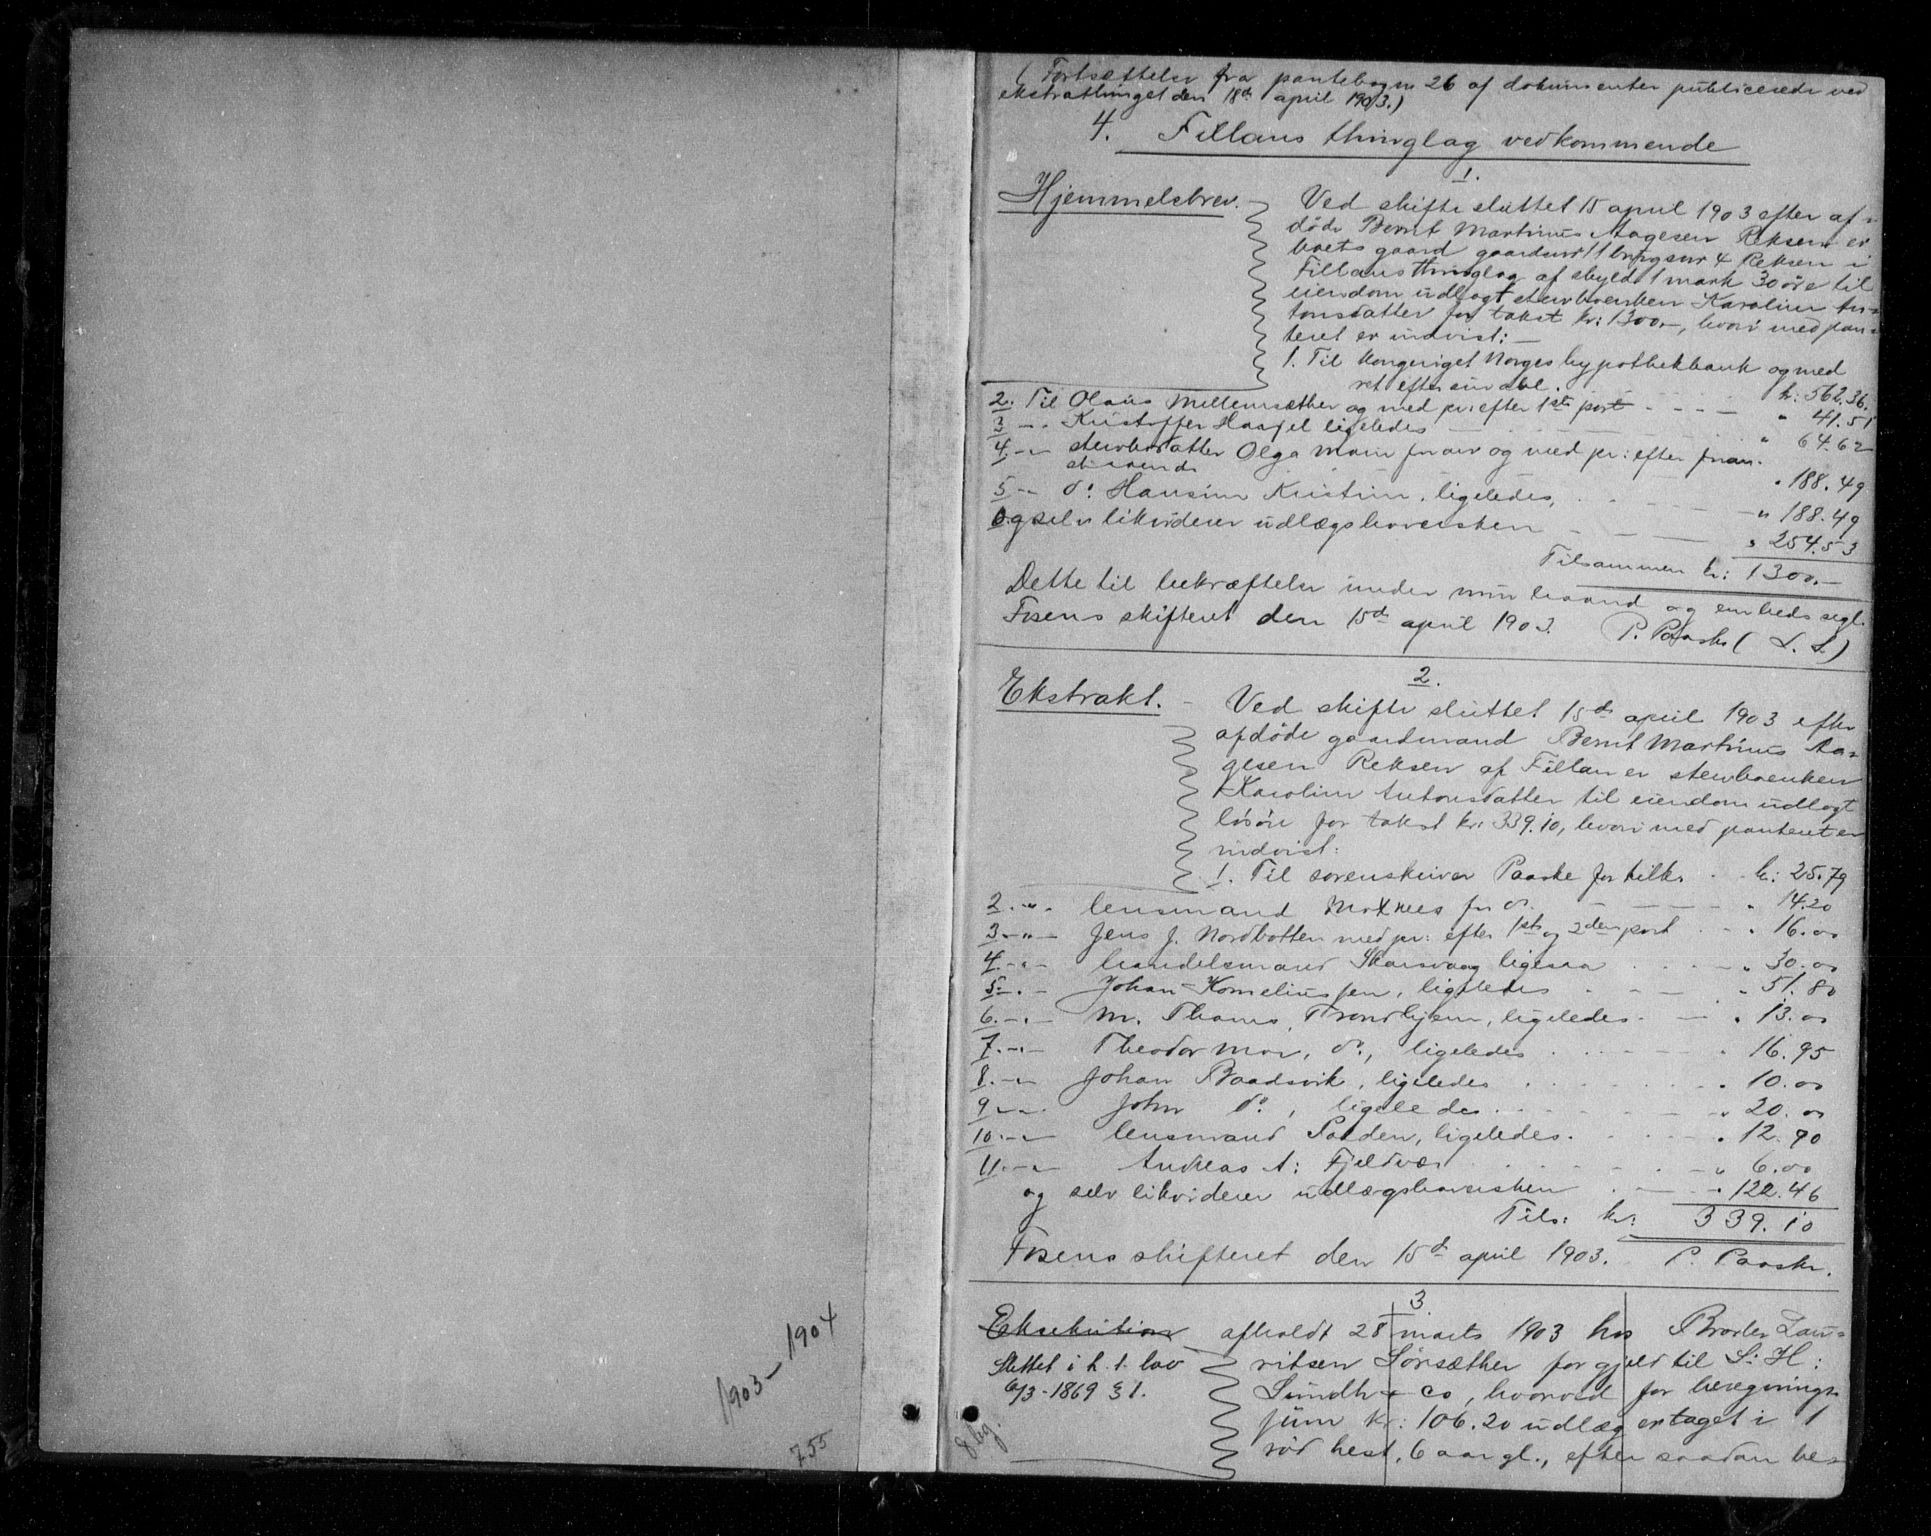 ( Fortsættelse fra pantebogen 26 af dokumenter publicerede ved
ekstrathinget den 18de april 1903.)
4. Fillans thinglag vedkommende
1.
Hjemmelsbrev. Ved skifte sluttet 15 april 1903 efter af-
døde Bernt Martinus Aagesen Reksen er
boets gaard gaardsnr 11 brugsnr 4 Reksen i
Fillans thinglag af skyld 1 mark 30 øre til
eiendom udlagt stervboenken Karoline An-
tonsdatter for takst kr: 1300.-, hvori med pan-
teret er indvist:
1. Til kongeriget Norges hypothekbank og med
ret efter sin obl. kr: 562.36.
2. Til Olaus Mellemsæther og med pr: efter 1ste post " 41.51
3 -"- Kristoffer Hasfjel ligeledes " 64.62
4. -"- stervbodatter Olga Marie for arv og med pr: efter foran-
staaende " 188.49
5 -"- do Hansine Kristine, ligeledes, " 188.49
Og selv likviderer udlægshaversken " 254.53
Tilsammen kr: 1300.-
Dette til bekræftelse under min haand og embedssegl.
Fosens skifteret den 15de april 1903. P. Paaske ( L. S.)
2.
Ekstrakt. Ved skifte sluttet 15de april 1903 efter
afdøde gaardmand Bernt Martinus Aa-
gesen Reksen af Fillan er stervboenken
Karoline Antonsdatter til eiendom udlagt
løsøre for takst kr: 339.10, hvori med panteret er
indvist:
1. Til sorenskriver Paaske for tilk. kr: 25.79
2. -"- lensmand Moxnes for do. " 14.20
3 -"- Jens J. Nordbotten med pr: efter 1ste og 2den post " 16.00
4. -"- handelsmand Skarsvaag ligesaa " 30.00
5. -"- Johan Korneliussen, ligeledes " 51.80
6. -"- M. Thams, Trondhjem, ligeledes " 13.00
7. -"- Theodor Moe, do, ligeledes " 16.95
8. -"- Johan Baadsvik, ligeledes " 10.00
9 -"- John do, ligeledes " 20.00
10. -"- lensmand Solden, ligeledes. " 12.90
11. -"- Andreas A: Fjeldvær " 6.00
og selv likviderer udlægshaversken " 122.46
Tils: kr: 339.10
Fosens skifteret den 15de april 1903. P. Paaske.
3.
Eksekution afholdt 28 marts 1903 hos Broder Lau-
Slettet i h. t. lov ritsen Sørsæther for gjeld til S: H:
6/3 - 1869 § 1. Sundt & co, hvorved for beregnings-
sum kr: 106.20 udlæg er taget i 1
rød hest, 6 aar gl., efter saadan be-
1903 - 1904
755
8 bg.